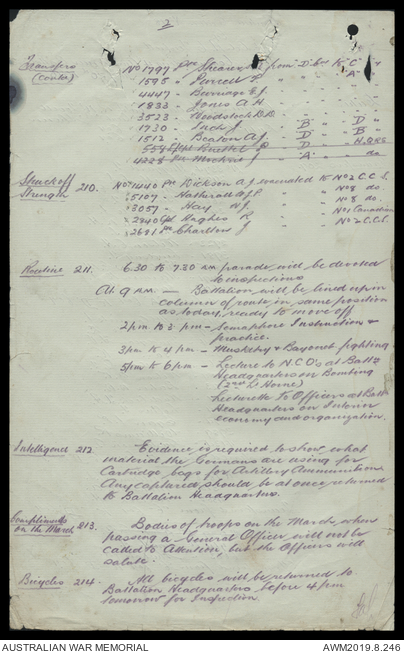 2
Transfers No 1797 Pte Shearer from D Coy to C
(Contd) 1595 " Purcell " " " A "
4447 " Burridge E.J. " " "
1833 " Jones A.H. " " "
3523 " Woodstock D.D. " " "
1730 " J " B " D "
1512 " Beaton A.J. " D " B "
558 " D " H.Qrs
4228 Pte J " A " do
Struck off 210. No 1440 Pte Dickson A.J. evacuated to No 2 C.C.S.
Strength 5107 " W.J.P. " No 8 do.
3057 " Hay W.J. " No 8 do.
2940 Cpl Hughes R " No 1 Canadian
2691 Pte Charlton J " No 2 C.C.S.
Routine 211. 6.30 to 7.30 a.m. parade will be devoted
to inspections
At 9 a.m. — Battalion will be lined up in
column of route in same position
as today, ready to move off
2 pm to 3 pm — Semaphore Instruction &
practice.
3 pm to 4 pm — Musketry & Bayonet fighting
5 pm to 6 pm — Lecture to N.C.O's at Battn
Headquarters on Bombing
(2nd Lt Horne)
Lecturette to Officers at Batt
Headquarters on Interior
economy and organization.
Intelligence 212. Evidence is required to show what
material the Germans are using for
Cartridge bags for Artillery Ammunition
Any captured should be at once returned
to Battalion Headquarters.
Compliments
on the March 213. Bodies of troops on the March when
passing a General Officer will not be
called to Attention, but the Officers will
salute.
Bicycles 214. All bicycles will be returned to
Battalion Headquarters before 4 pm
tomorrow for Inspection
AUSTRALIAN WAR MEMORIAL AWM2019.8.246